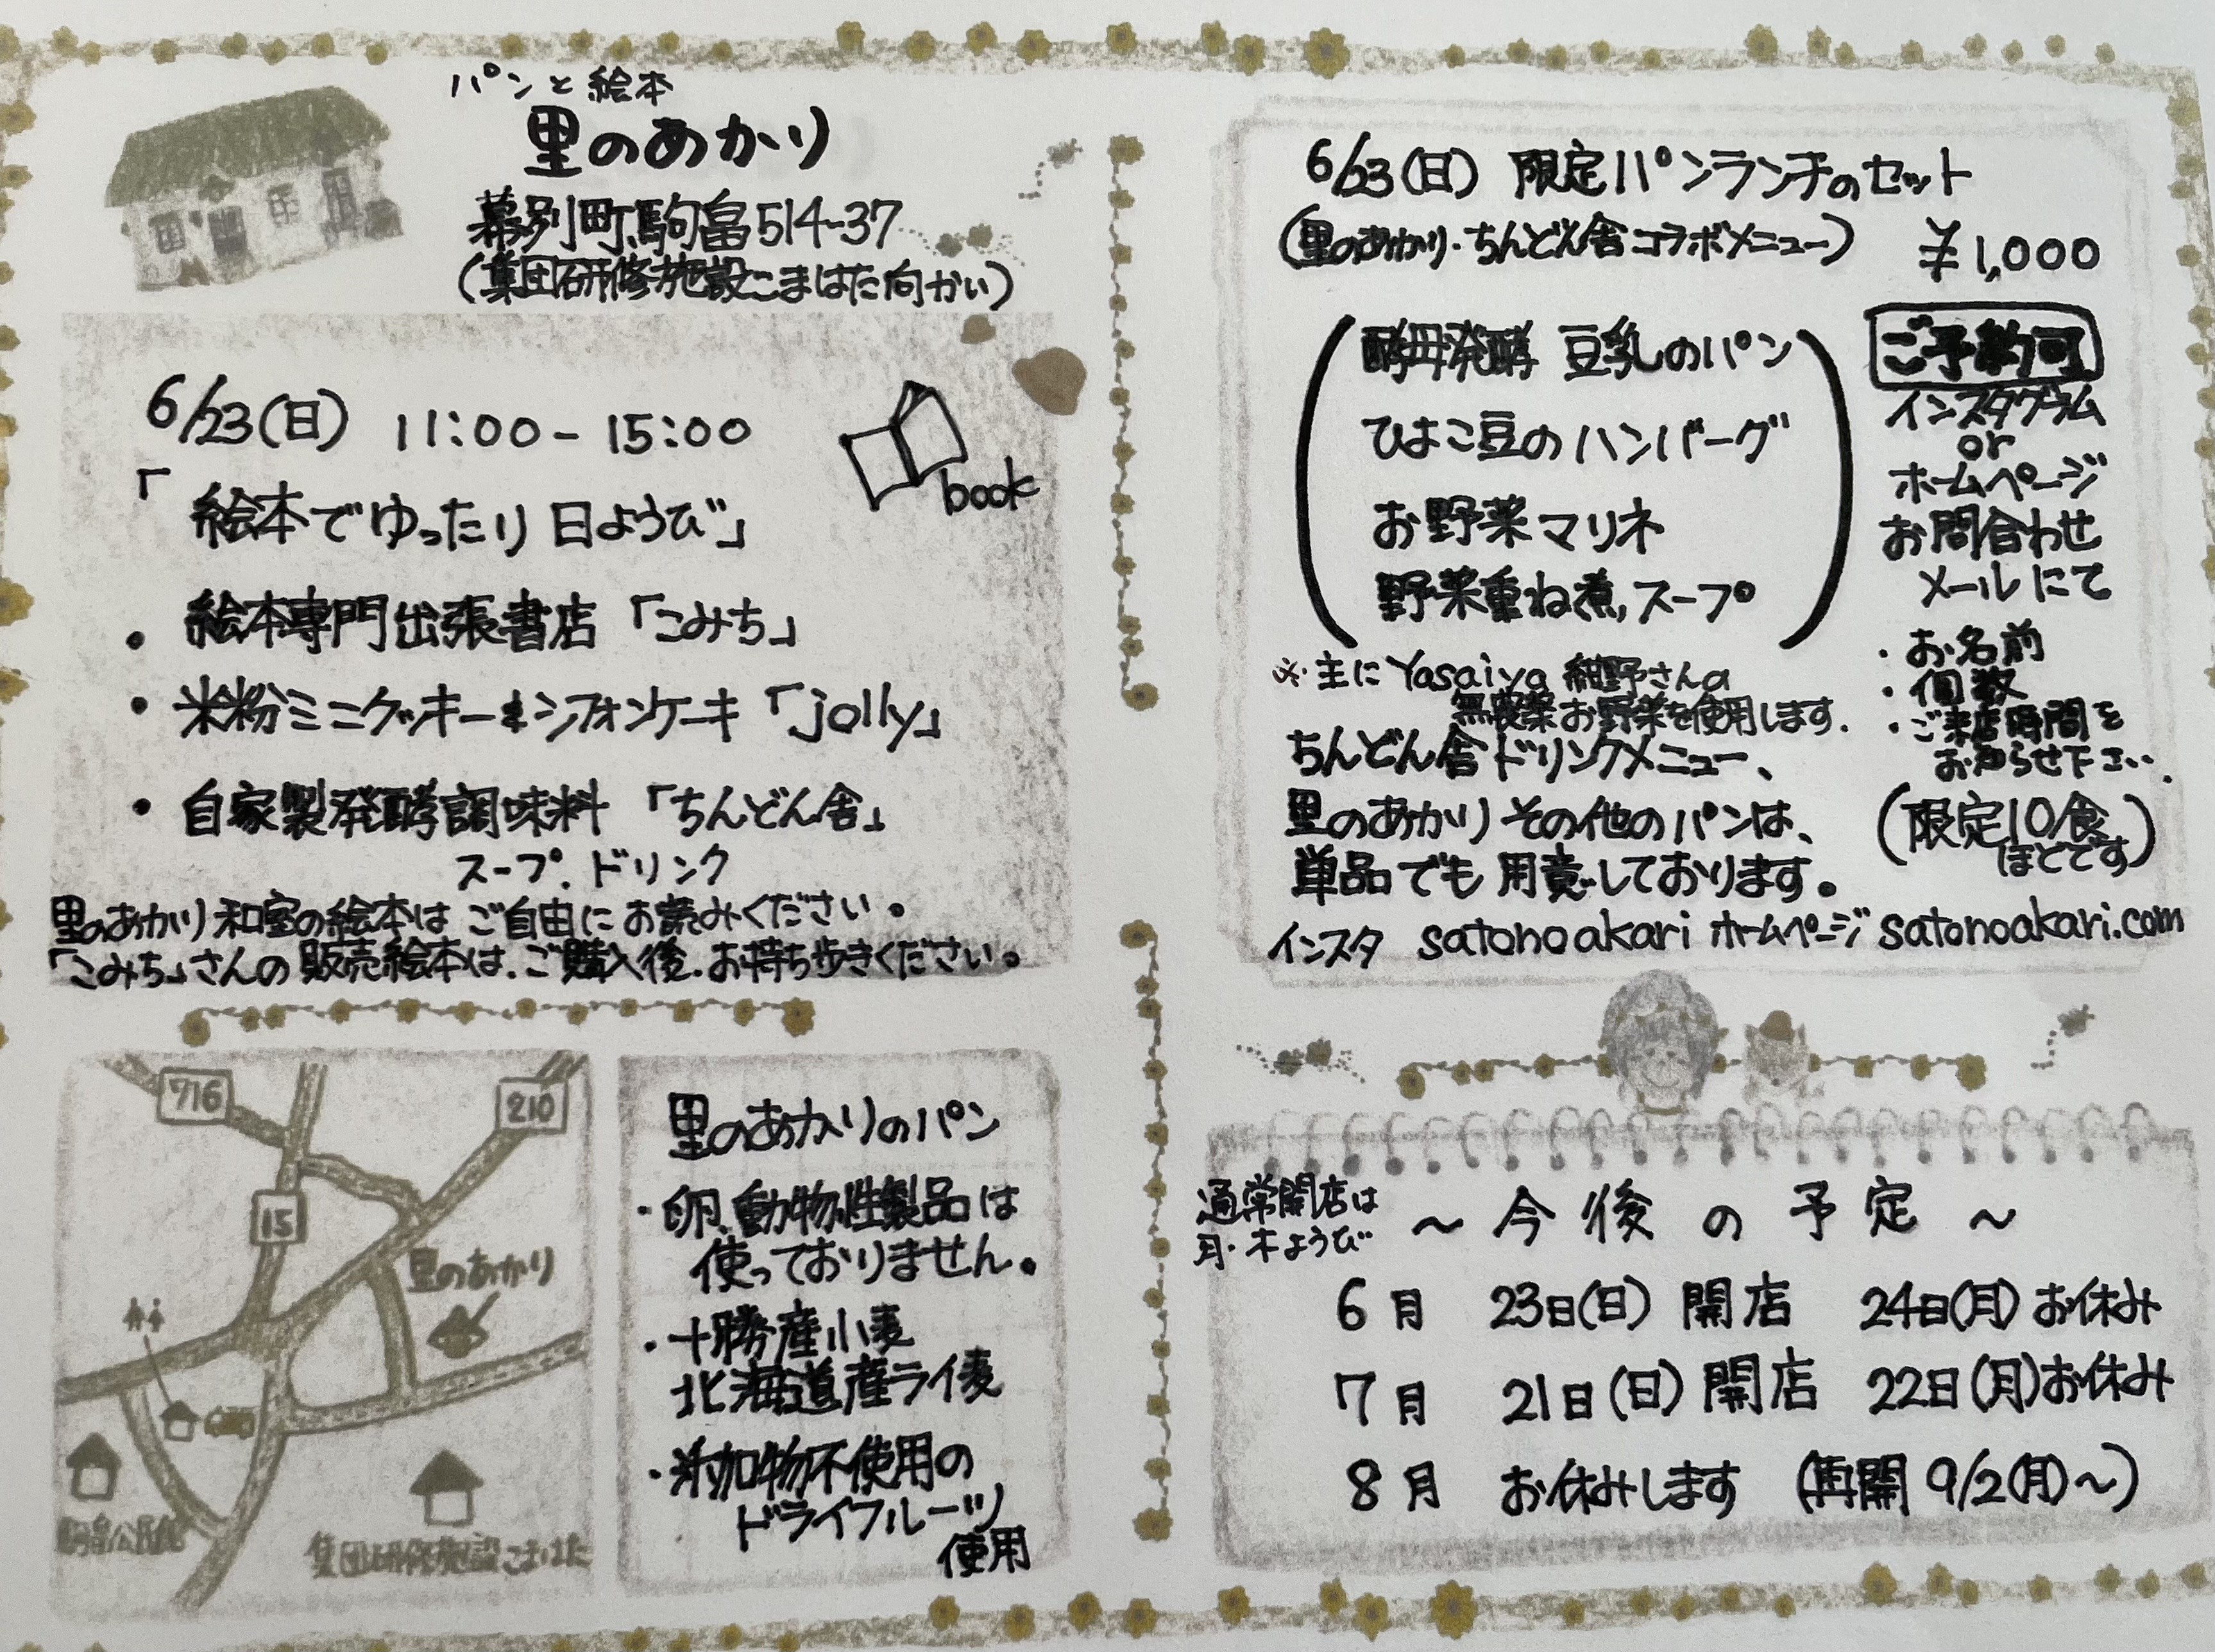 パンと絵本
里のあかり
幕別町駒畠514-37
(集団研修施設こまはた向かい)
6/23(日) 11:00-15:00
「絵本でゆったり日ようび」
book
・絵本専門出張書店「こみち」
・米粉ミニクッキー&シフォンケーキ「jolly」
・自家製発酵調味料「ちんどん舎」
スープ.ドリンク
里のあかり和室の絵本はご自由にお読みください。
「こみち」さんの販売絵本は、ご購入後、お持ち歩きください。
716
210
15
里のあかり
駒畠公民館
集団研修施設こまはた
里のあかりのパン
・卵、動物性製品は
使っておりません。
・十勝産小麦
北海道産ライ麦
・添加物不使用の
ドライフルーツ
使用
6/23(日) 限定パンランチのセット
(里のあかり・ちんどん舎コラボメニュー) ¥1,000
酵母発酵 豆乳のパン
ひよこ豆のハンバーグ
お野菜マリネ
野菜重ね煮スープ
ご予約可
インスタグラム
or
ホームページ
お問合わせ
メールにて
・お名前
・個数
・ご来店時間を
お知らせ下さい.
(限定10食
ほどです)
※主にYasaiya 紺野さんの
無農薬お野菜を使用します.
ちんどん舎ドリンクメニュー、
里のあかりその他のパンは、
単品でも用意しております。
インスタ satonoakari ホームページ satonoakari.com
通常開店は
月・木ようび
～今後の予定～
6月 23日(日) 開店 24日(月)お休み
7月 21日(日) 開店 22日(月)お休み
8月 お休みします (再開 9/2(月)～)